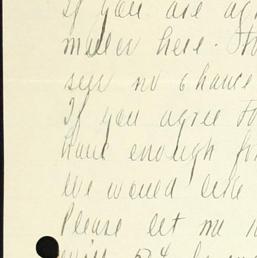 If you are
matter here.
see no chance
If you agree
have enough for
We would like
Please let me
will